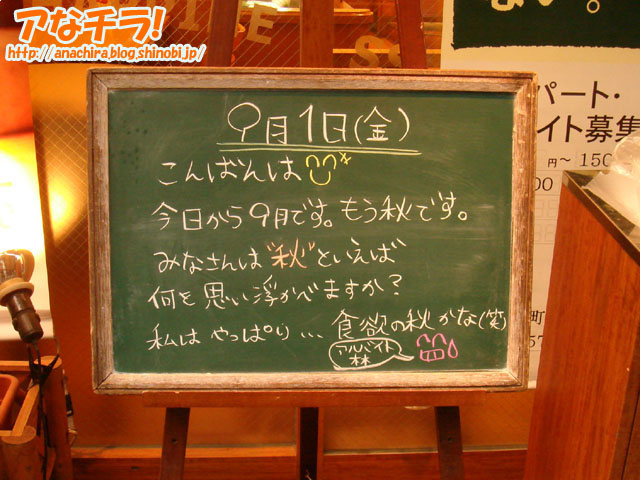 アなチラ!
http://anachira.blog.shinobi.jp/
9月1日(金)
こんばんは
今日から9月です。もう秋です。
みなさんは"秋"といえば
何を思い浮かべますか?
私は やっぱり... 食欲の秋かな(笑)
アルバイト
林
ない。
パート・
イト募集
円〜150
00
町
57